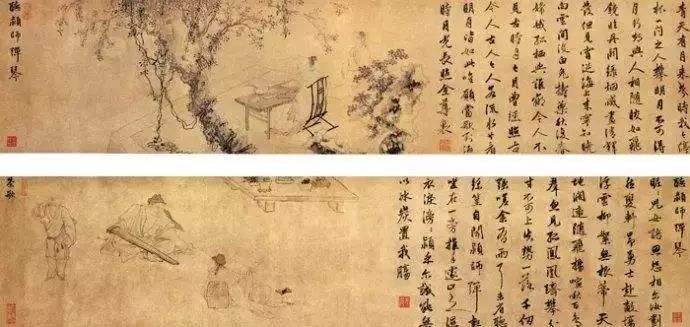 青天有月來幾時我今停
杯一問之人攀明月不可得
月行却與人相隨皎如飛
鏡臨丹闕綠烟滅盡清輝
發但見宵從海上來寧知曉
向雲間没白兔搗藥秋復春
嫦娥孤栖與誰鄰今人不
見古時月今月曾經照古
人今人古人若流水共看
明月皆如此唯願當歌對酒
時月光長照金尊裏
聽穎師彈琴
聽穎師彈琴
昵昵兒女語恩怨相爾汝劃
然變軒昂勇士赴敵場
浮雲柳絮無根蒂天
地闊遠隨飛揚喧啾百鳥
群忽見孤鳳凰躋攀分
寸不可上失勢一落千丈
强嗟余有兩耳未省聽
絲篁自聞穎師彈起
坐在一旁推手遽止之濕
衣淚滂滂穎乎爾誠能無
以冰炭置我腸
茶歌